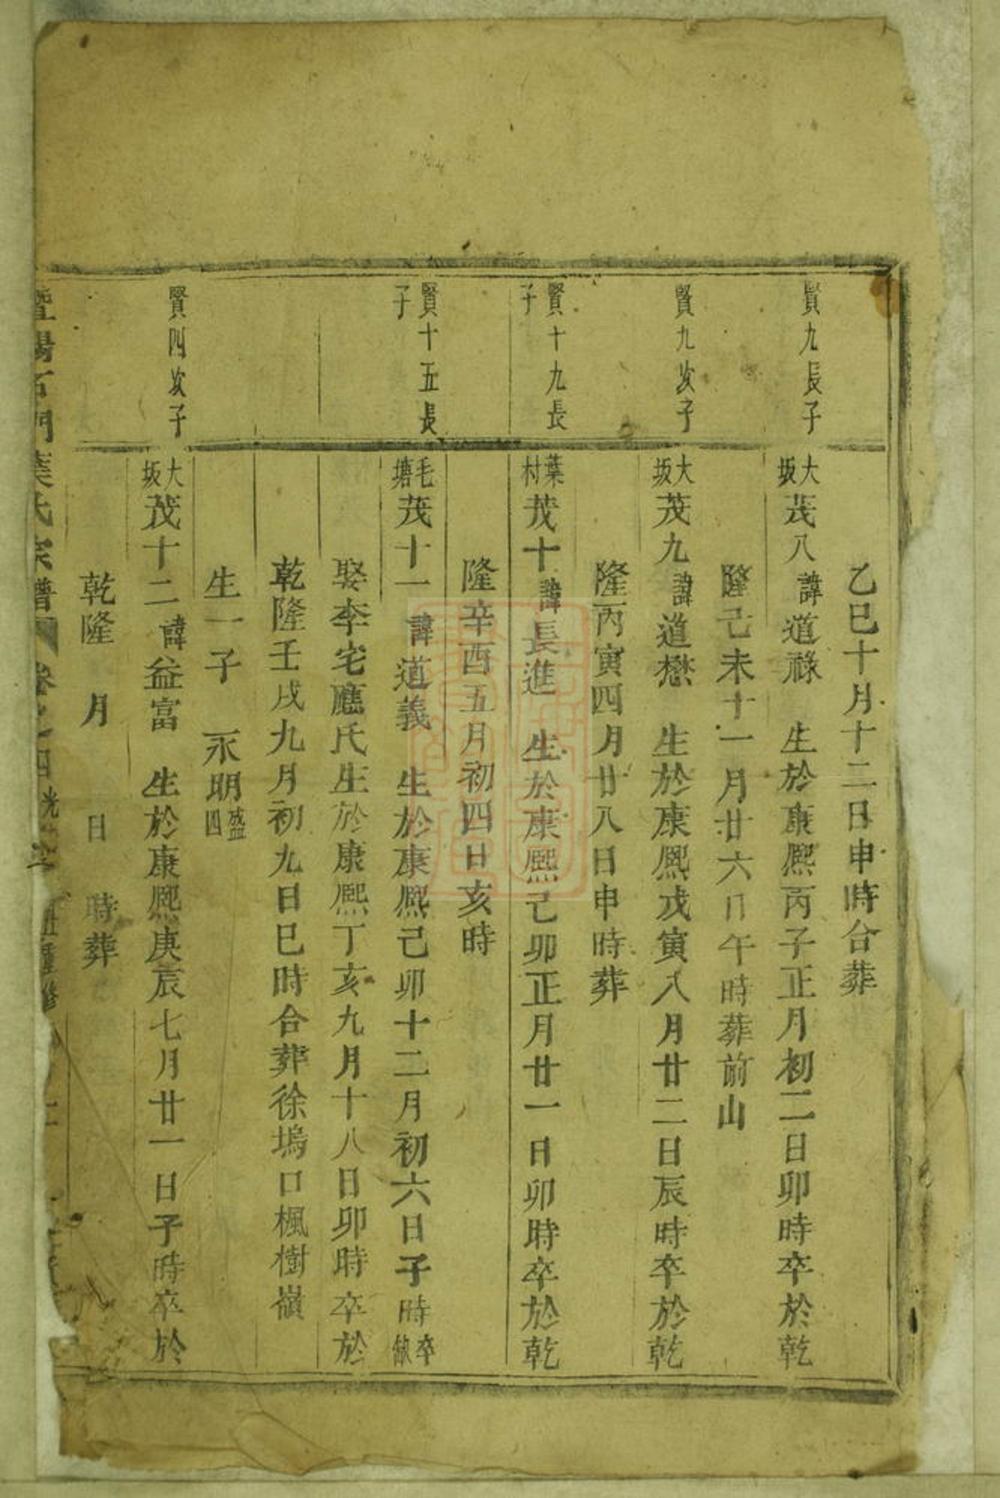 乙巳十月十二日申時合葬
賢九長子
大坂茂八諱道祿 生於康熙丙子正月初二日卯時卒於乾
隆己未十一月廿六日午時葬前山
賢九次子
大坂茂九諱道懋 生於康熙戊寅八月廿二日辰時卒於乾
隆丙寅四月廿八日申時葬
賢十九長子
葉村茂十諱長進 生於康熙己卯正月廿一日卯時卒於乾
隆辛酉五月初四日亥時
賢十五長子
毛塘茂十一諱道義 生於康熙己卯十二月初六日子時卒缺
娶李宅應氏生於康熙丁亥九月十八日卯時卒於
乾隆壬戌九月初九日巳時合葬徐塢口楓樹嶺
生一子 永明盛四
賢四次子
大坂茂十二諱益富 生於康熙庚辰七月廿一日子時卒於
乾隆 月 日 時葬
暨陽石門葉氏宗譜 卷之四 光